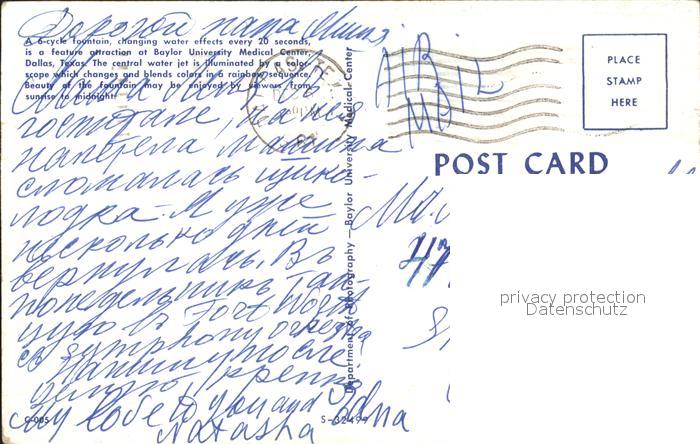 Дорогой папа Миша,
A 6-cycle fountain, changing water effects every 20 seconds,
is a feature attraction at Baylor University Medical Center,
Dallas, Texas. The central water jet is illuminated by a color-
scope which changes and blends colors in a rainbow sequence.
Beauty of the fountain may be enjoyed by viewers from
sunrise to midnight.
Мама
госпитале, на нее
налетела машина
сломалась щико-
лодка. Я уже
несколько дней
вернулась. Въ
понедельникъ тан-
цую въ Fort Worth
съ symphony orkestra
Напишу после
целую, крепко
my love to you and Edna
Natasha
C-005
S-32499
Department of Photography — Baylor University Medical Center
AIR
MAIL
PLACE
STAMP
HERE
POST CARD
47
privacy protection
Datenschutz